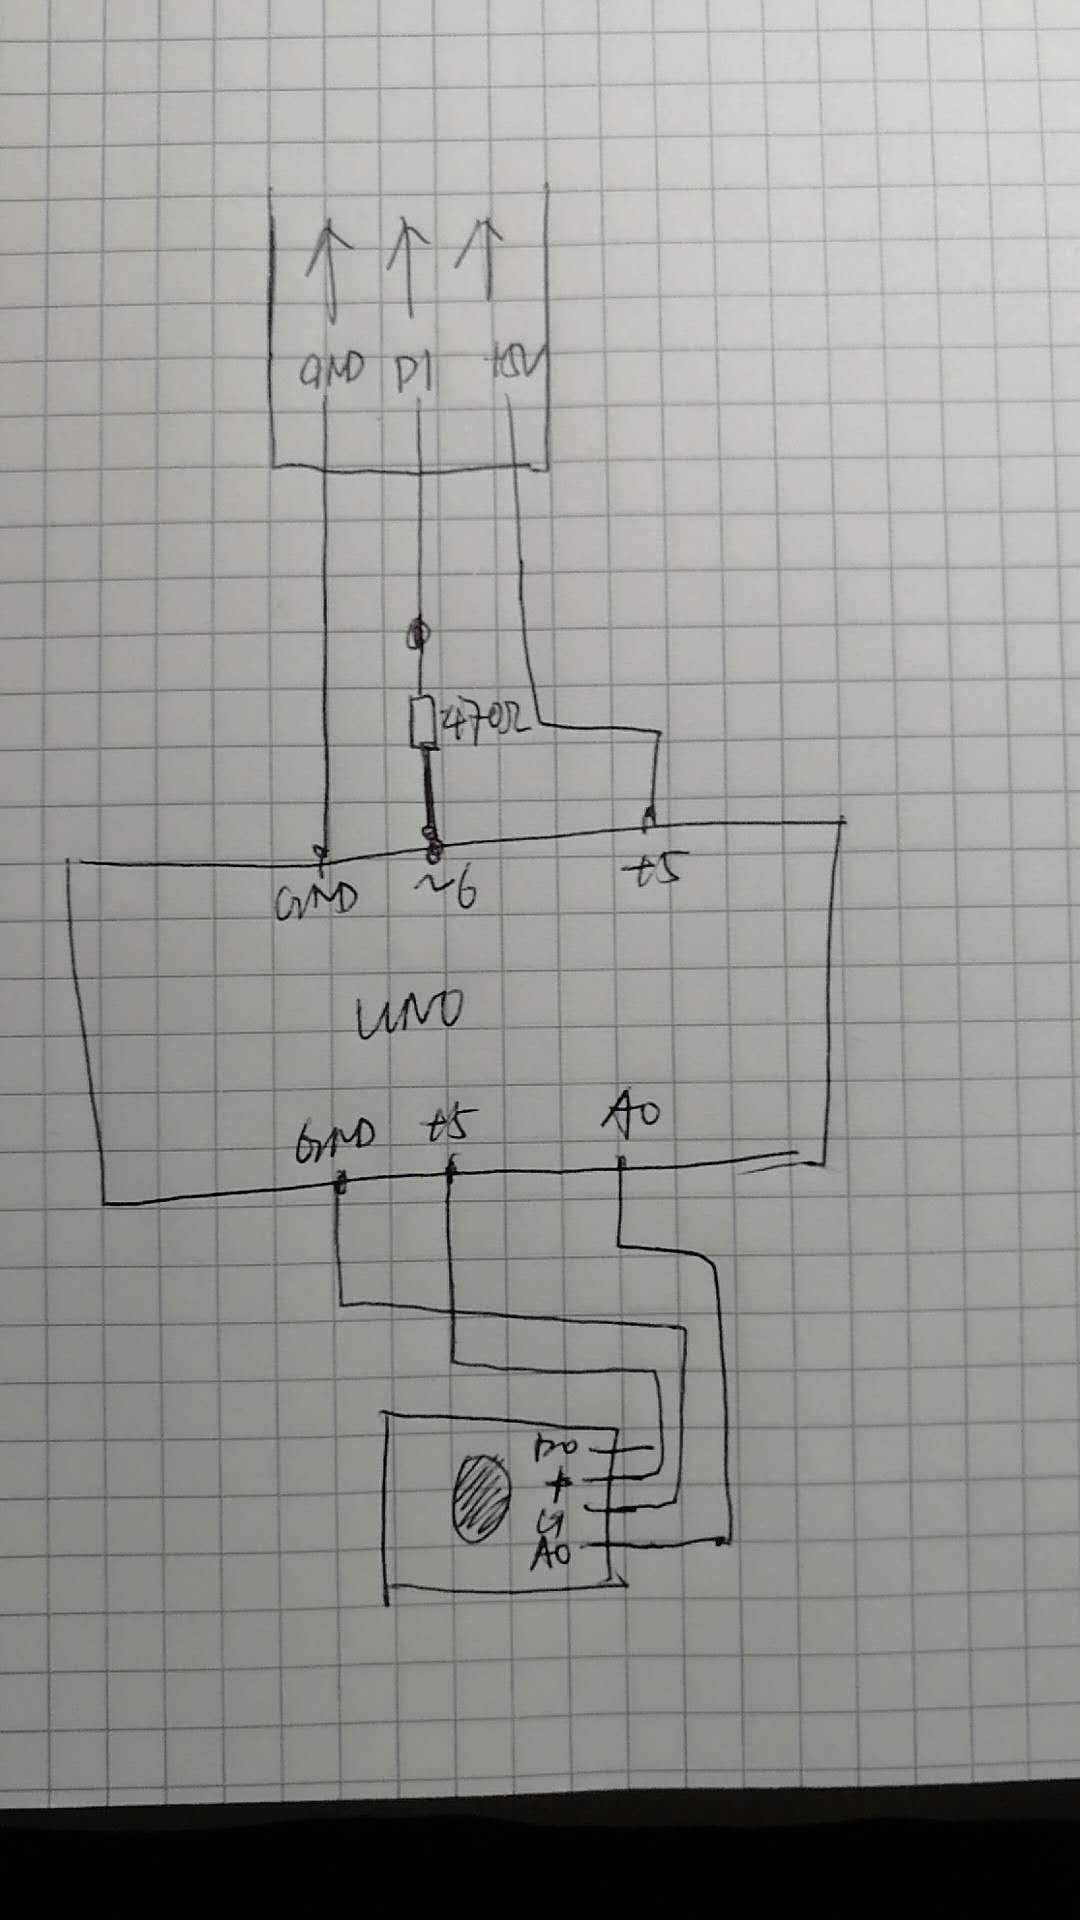 GND DI +5V
470Ω
GND ~6 +5
UNO
GND +5 A0
+
G
A0